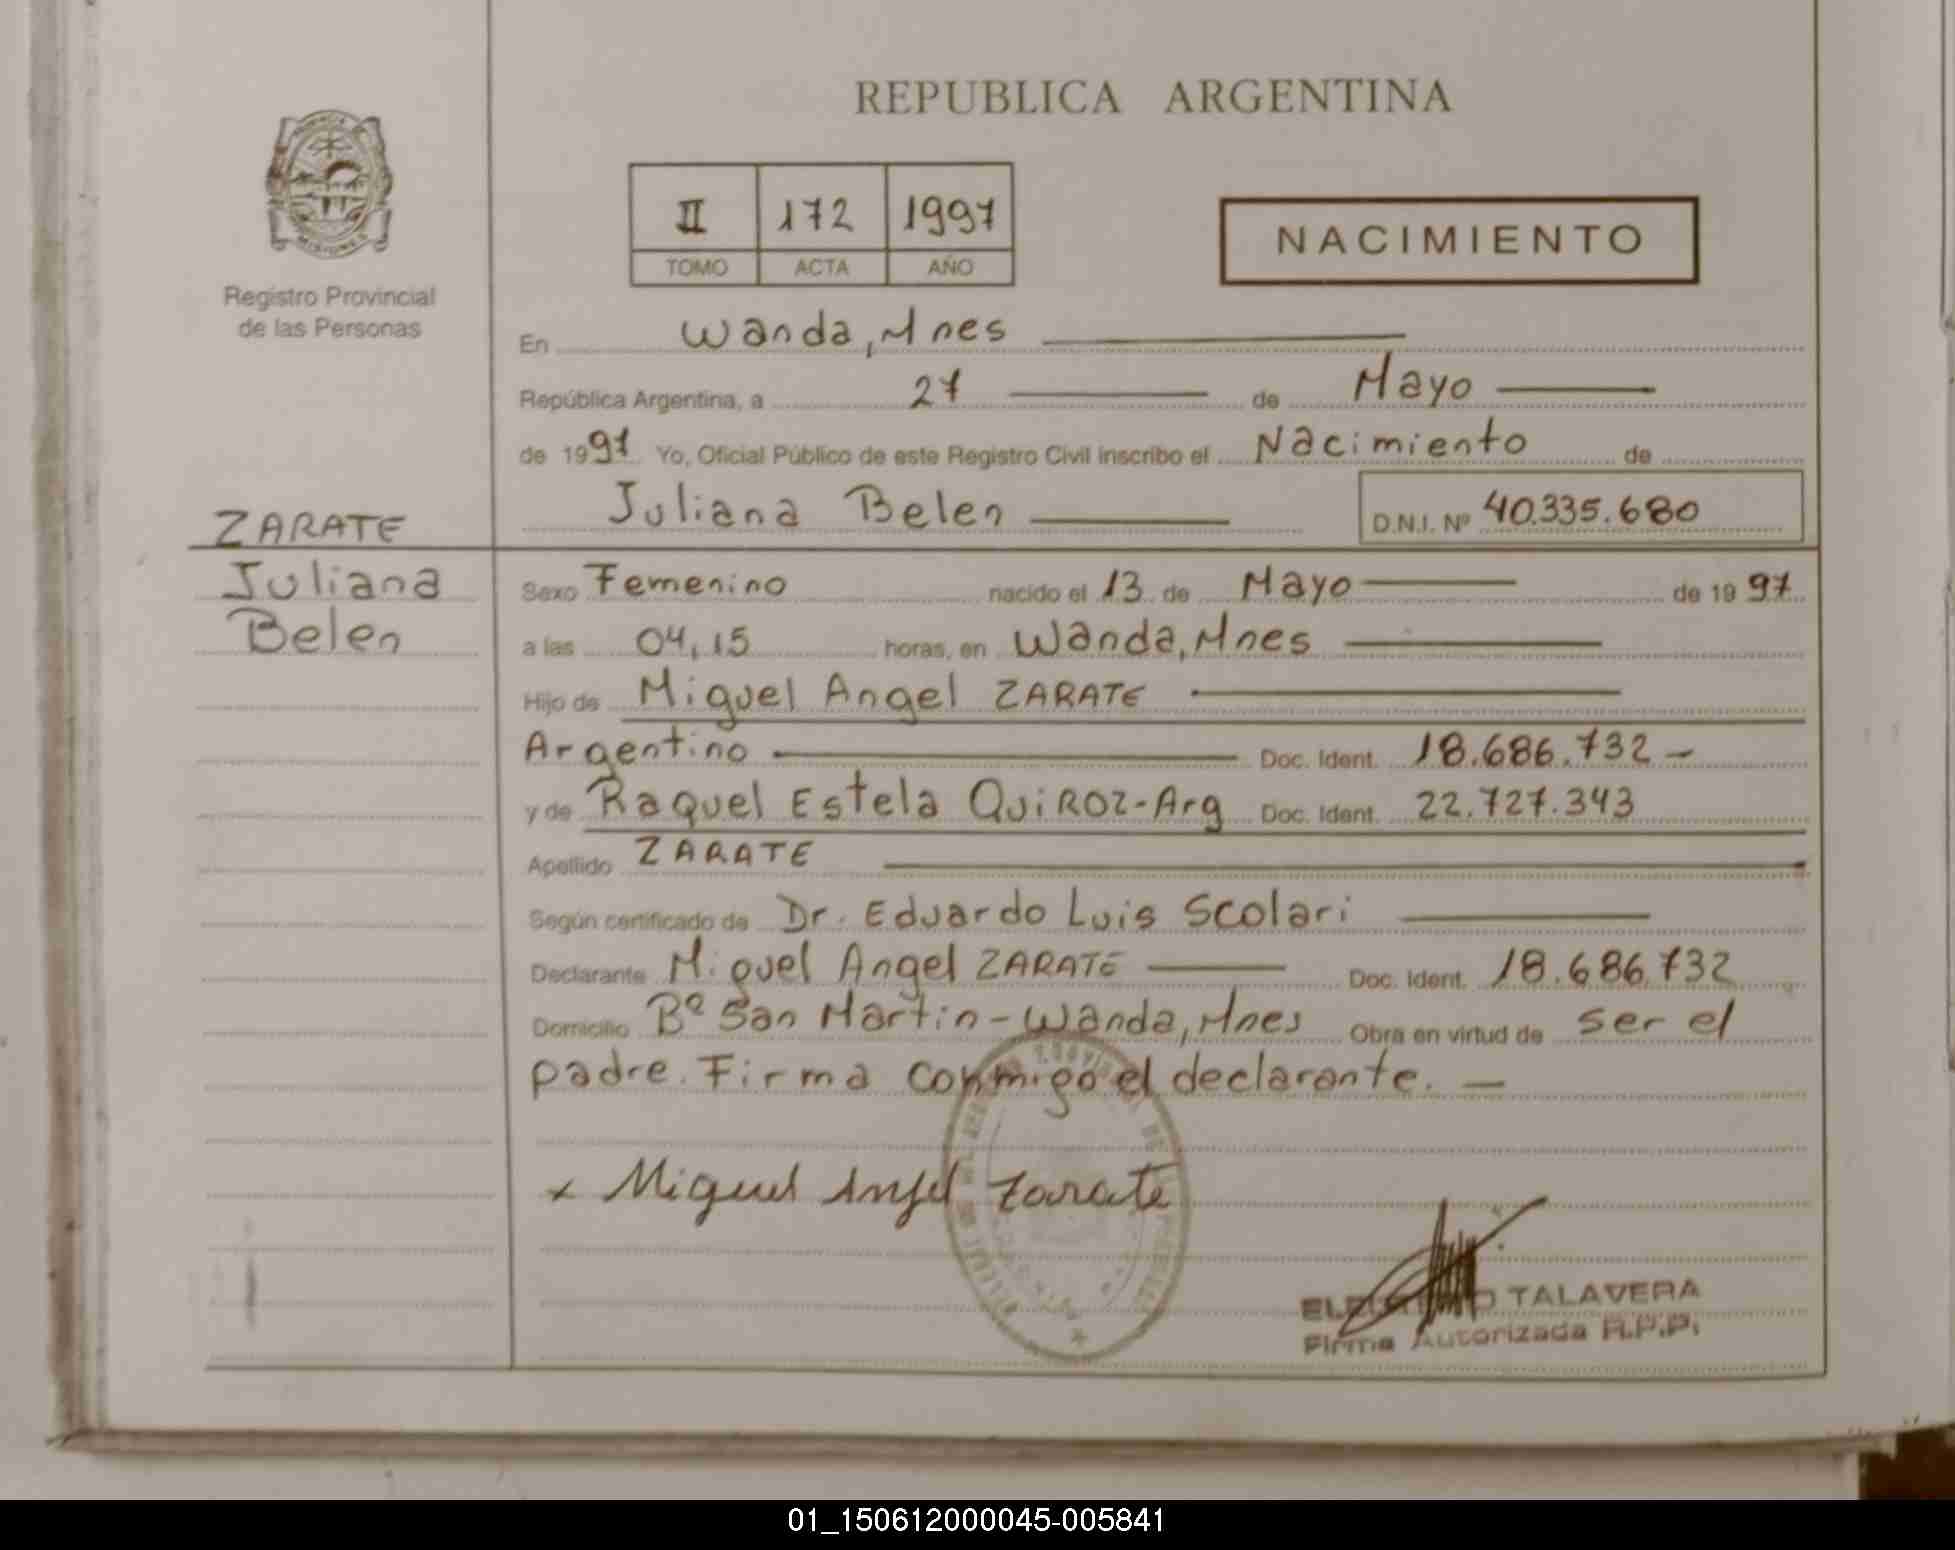 REPUBLICA ARGENTINA
II 172 1997
TOMO ACTA AÑO
NACIMIENTO
MISIONES
Registro Provincial
de las Personas
En Wanda, Mnes
República Argentina, a 27 de Mayo
de 1997 Yo, Oficial Público de este Registro Civil inscribo el Nacimiento de
Juliana Belen D.N.I. Nº 40.335.680
ZARATE
Juliana
Belen
Sexo Femenino nacido el 13 de Mayo de 1997
a las 04,15 horas, en Wanda, Mnes
Hijo de Miguel Angel ZARATE
Argentino Doc. Ident. 18.686.732 -
y de Raquel Estela QUiROZ-Arg Doc. Ident. 22.727.343
Apellido ZARATE
Según certificado de Dr. Eduardo Luis Scolari
Declarante Miguel Angel ZARATE Doc. Ident. 18.686.732
Domicilio Bº San Martin - Wanda, Mnes Obra en virtud de ser el
padre. Firma conmigo el declarante. -
x Miguel Angel Zarate
TALAVERA
Firma Autorizada R.P.P.
01_150612000045-005841